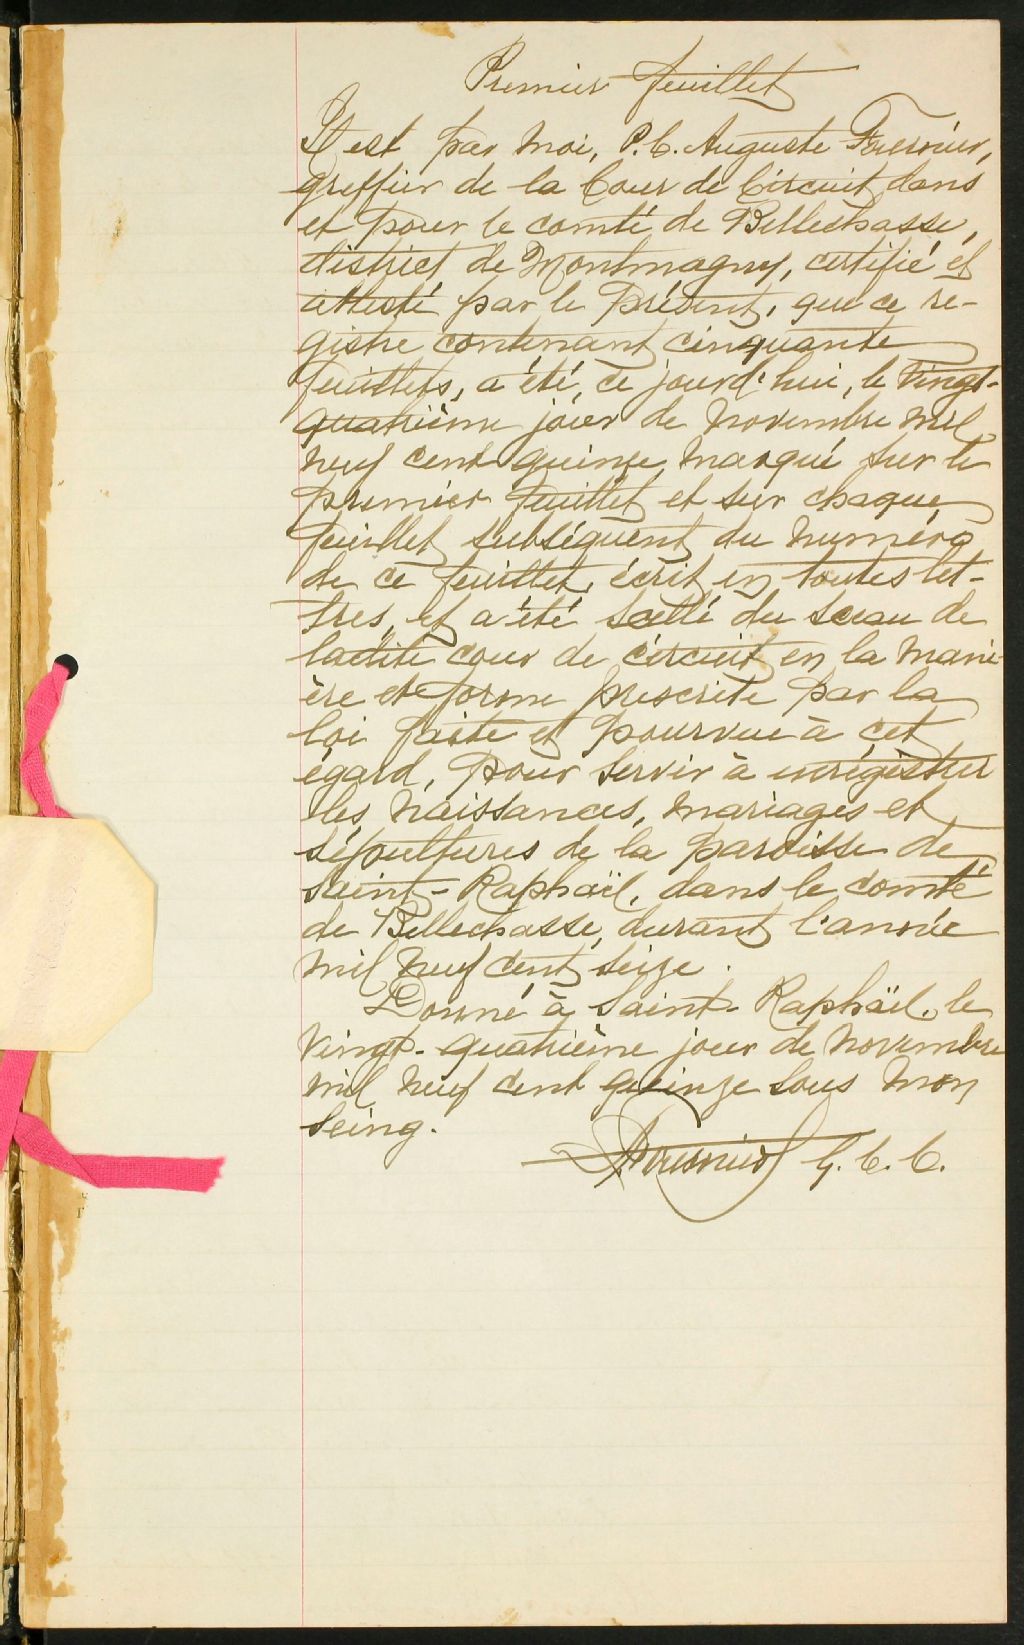 Premier feuillet
Il est par moi, P. C. Auguste Fournier,
greffier de la Cour de Circuit dans
et pour le comté de Bellechasse,
district de Montmagny, certifié et
attesté par le présent, que ce re-
gistre contenant cinquante
feuillets, a été, ce jourd'hui, le vingt-
quatrième jour de novembre mil
neuf cent quinze marqué sur le
premier feuillet et sur chaque
feuillet subséquent du numéro
de ce feuillet, écrit en toutes let-
tres, et a été scellé du sceau de
ladite cour de circuit en la mani-
ère et forme prescrite par la
loi faite et pourvue à cet
égard, pour servir à enrégistrer
les naissances, mariages et
sépultures de la paroisse de
Saint-Raphaël, dans le comté
de Bellechasse, durant l'année
mil neuf cent seize.
Donné à Saint-Raphaël, le
vingt-quatrième jour de novembre
mil neuf cent quinze sous mon
seing.
Fournier G. C. C.